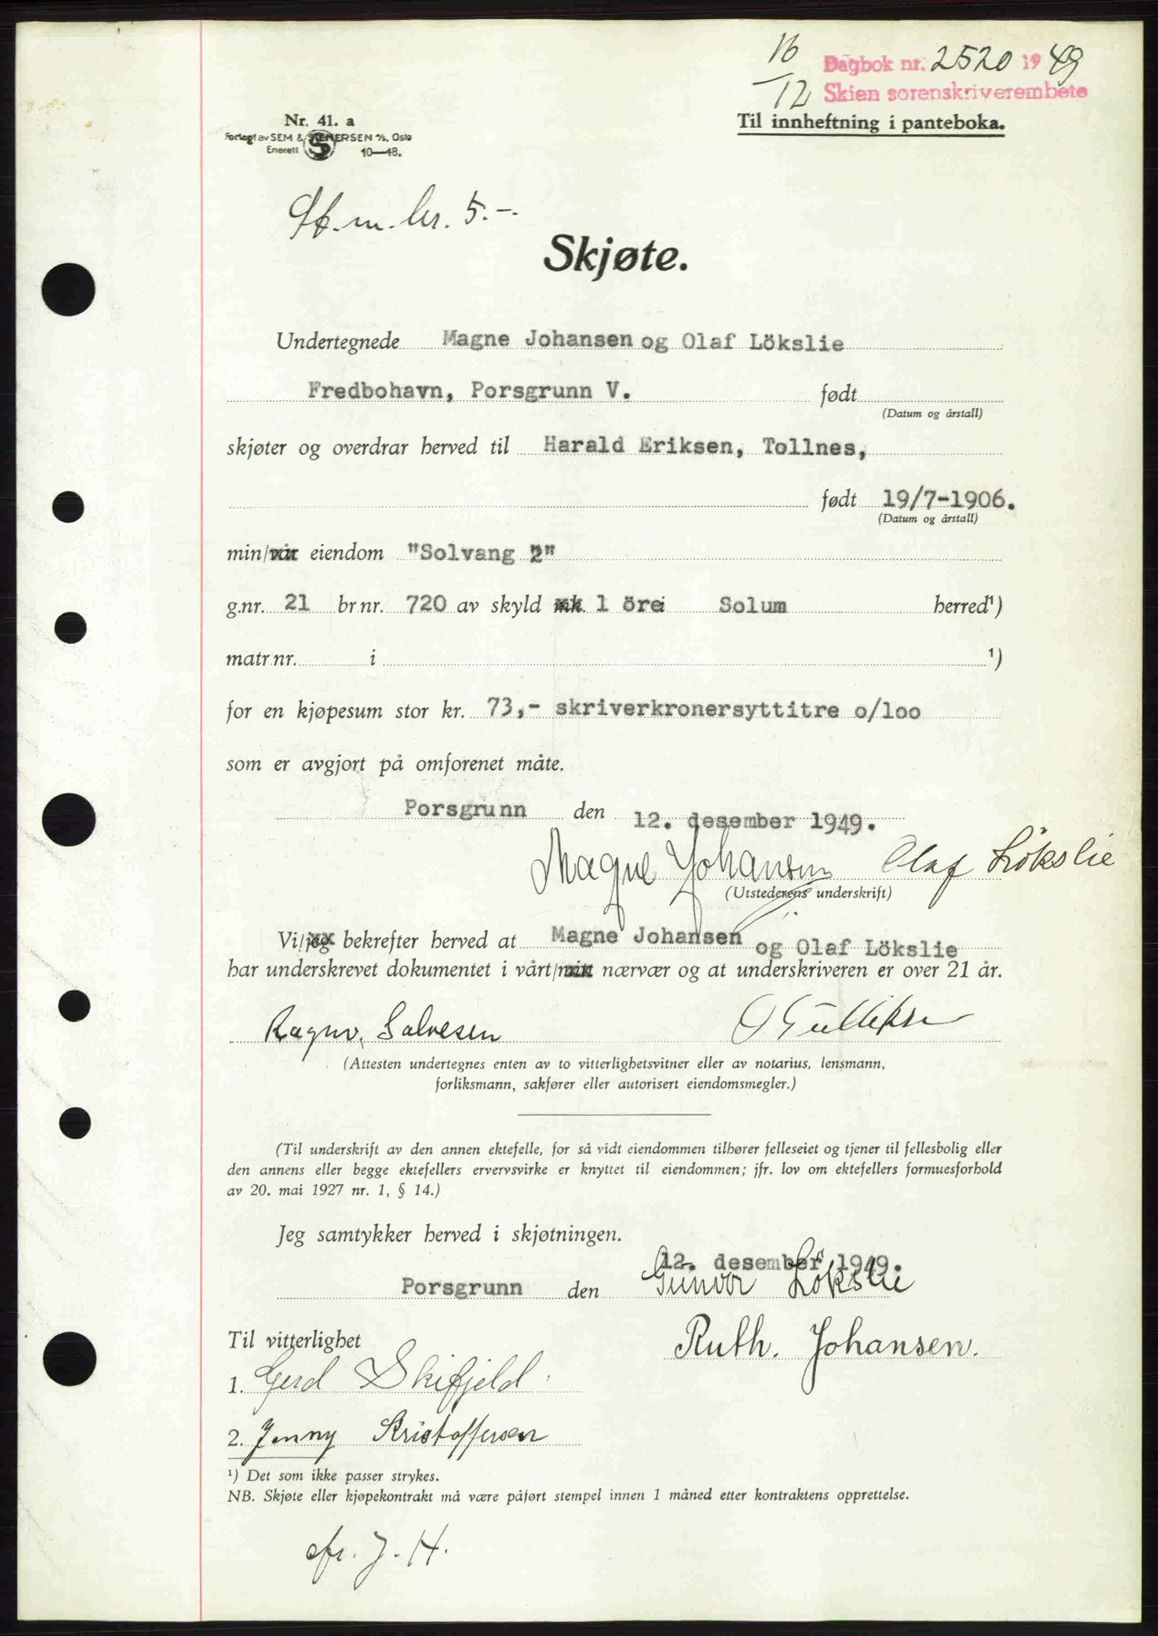 16/12 Dagbok nr. 2520 1949
Skien sorenskriverembete
Til innheftning i panteboka.
Nr. 41. a
Forlagt av SEM & STENERSEN A/S, Oslo
Enerett 10—48.
St.m. kr. 5.-.
Skjøte.
Undertegnede Magne Johansen og Olaf Lökslie
Fredbohavn, Porsgrunn V. født
(Datum og årstall)
skjøter og overdrar herved til Harald Eriksen, Tollnes,
født 19/7-1906.
(Datum og årstall)
min/vår eiendom "Solvang 2"
g.nr. 21 br nr. 720 av skyld mk 1 öre i Solum herred¹)
matr nr. i ¹)
for en kjøpesum stor kr. 73,- skriverkronersyttitre o/loo
som er avgjort på omforenet måte.
Porsgrunn den 12. desember 1949.
Magne Johansen Olaf Lökslie
(Utstederens underskrift)
Vi/jeg bekrefter herved at Magne Johansen og Olaf Lökslie
har underskrevet dokumentet i vårt/mitt nærvær og at underskriveren er over 21 år.
Ragnv. Salvesen O Gulliksen
(Attesten undertegnes enten av to vitterlighetsvitner eller av notarius, lensmann,
forliksmann, sakfører eller autorisert eiendomsmegler.)
(Til underskrift av den annen ektefelle, for så vidt eiendommen tilhører felleseiet og tjener til fellesbolig eller
den annens eller begge ektefellers ervervsvirke er knyttet til eiendommen; jfr. lov om ektefellers formuesforhold
av 20. mai 1927 nr. 1, § 14.)
Jeg samtykker herved i skjøtningen.
Porsgrunn den 12. desember 1949.
Gunvor Lökslie
Til vitterlighet Ruth. Johansen.
1. Gerd Skifjeld.
2. Jenny Kristoffersen
¹) Det som ikke passer strykes.
NB. Skjøte eller kjøpekontrakt må være påført stempel innen 1 måned etter kontraktens opprettelse.
J. H.